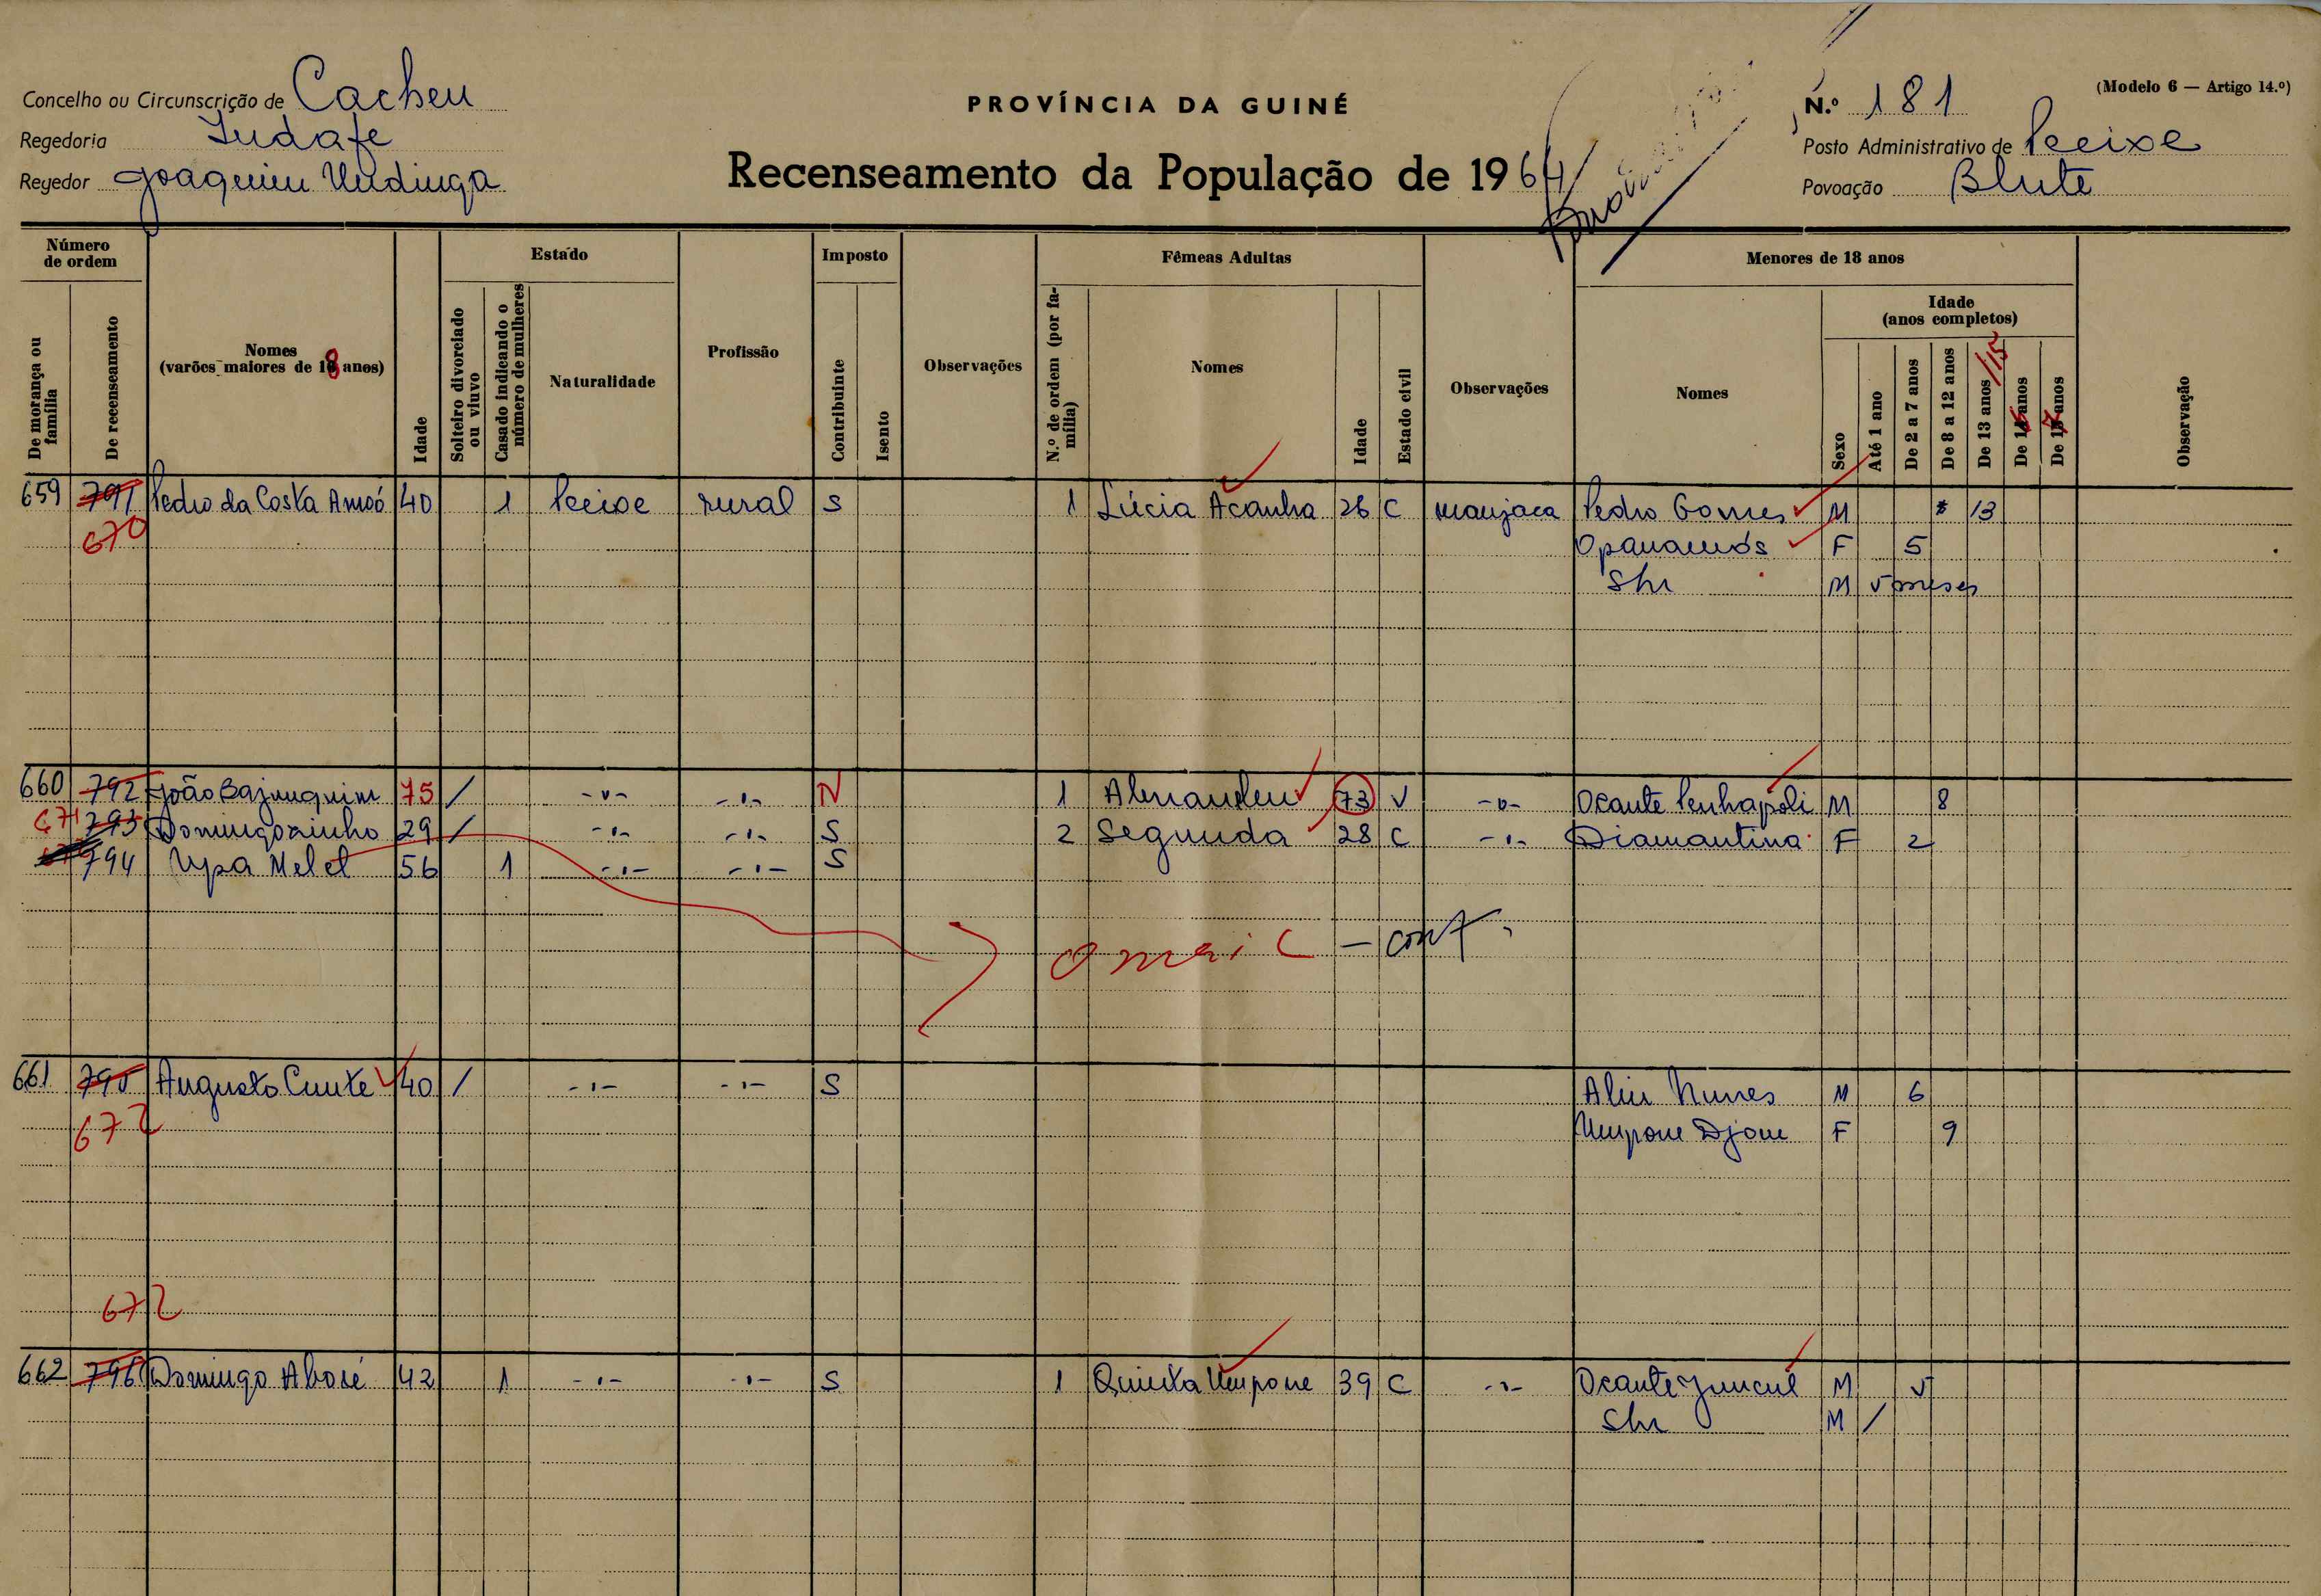 Concelho ou Circunscrição de Cacheu
Regedoria
Regedor Joaquim
PROVÍNCIA DA GUINÉ
Recenseamento da População de 1964
(Modelo 6 — Artigo 14.º)
N.º 181
Posto Administrativo de Pecixe
Povoação Blute
Número de ordem
De morança ou família
De recenseamento
Nomes (varões maiores de 18 anos)
Idade
Estado
Solteiro divorciado ou viuvo
Casado indicando o número de mulheres
Naturalidade
Profissão
Imposto
Contribuinte
Isento
Observações
Fêmeas Adultas
N.º de ordem (por família)
Nomes
Idade
Estado civil
Observações
Menores de 18 anos
Nomes
Sexo
Idade (anos completos)
Até 1 ano
De 2 a 7 anos
De 8 a 12 anos
De 13 anos /15
De anos
De anos
Observação
659 791 Pedro da Costa 40 1 Pecixe rural S 1 Lúcia Acanha 26 C manjaca Pedro Gomes M 13
670 F 5
M 5 meses
660 792 João 75 / -"- -"- N 1 73 V -"- Ocante M 8
671 793 Domingosinho 29 / -"- -"- S 2 Segunda 28 C -"- Diamantina F 2
794 Upa Melel 56 1 -"- -"- S
661 795 Augusto 40 / -"- -"- S Nunes M 6
672 F 9
672
662 796 Domingo 42 1 -"- -"- S 1 Quinta 39 C -"- Ocante M 5
M /